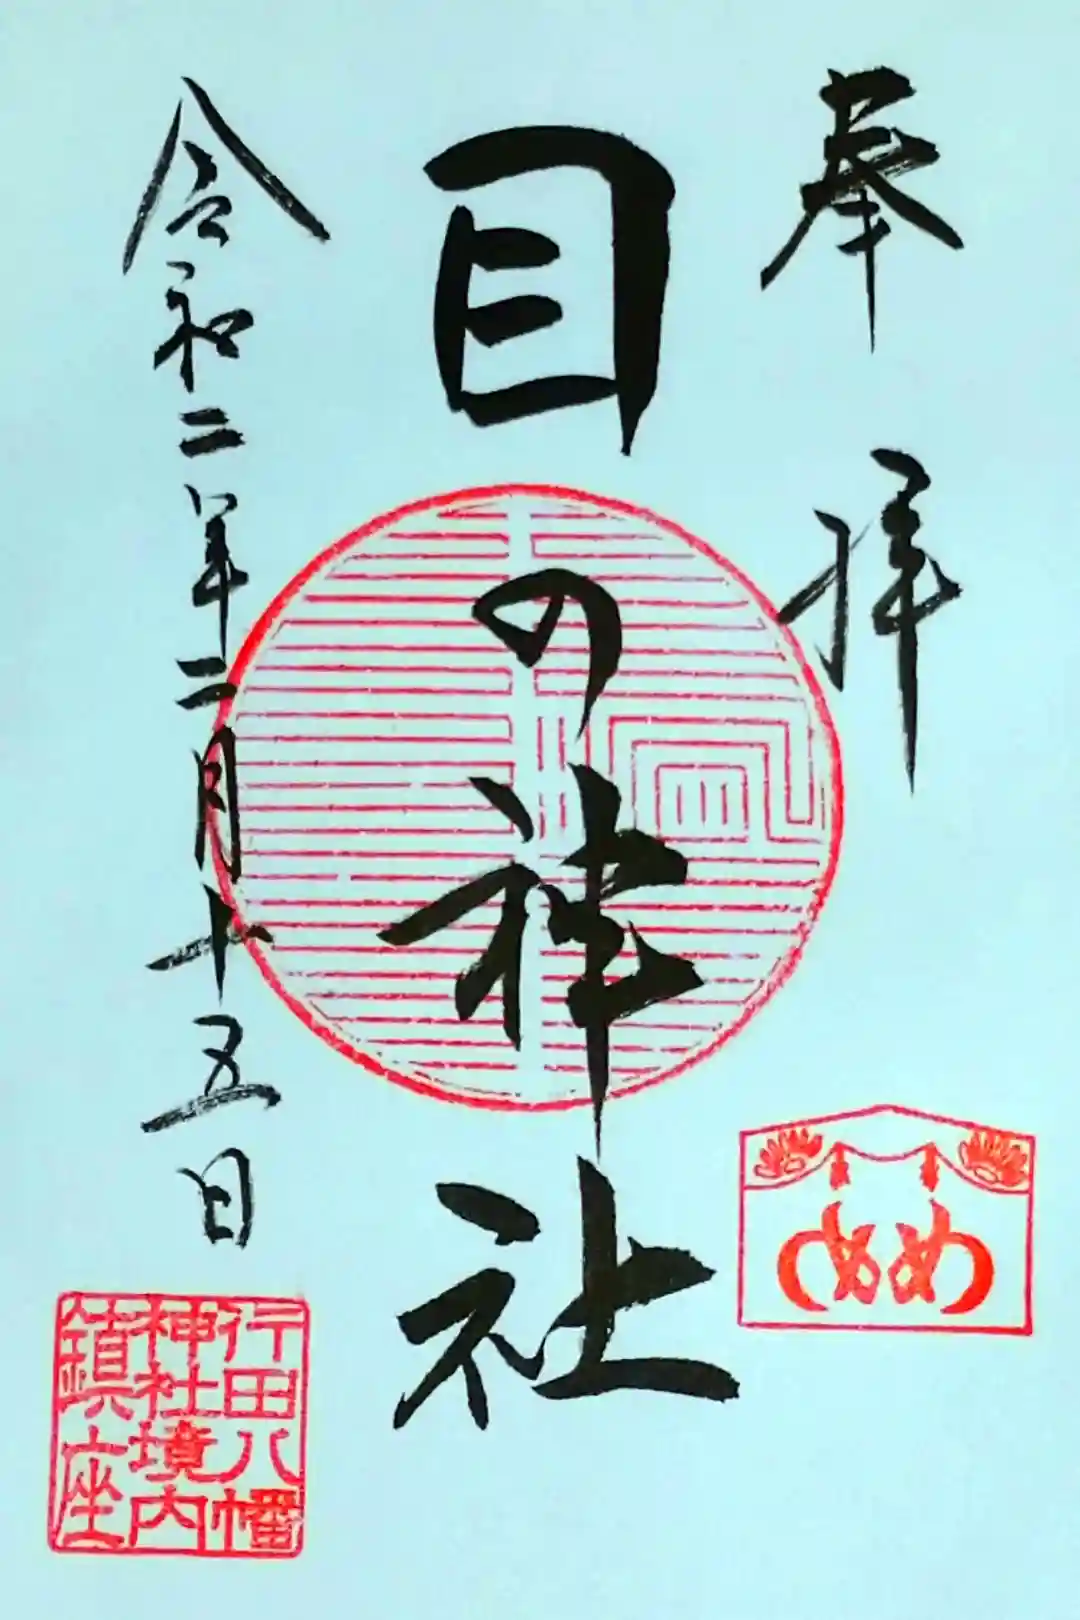 奉拝
目の神社
令和二年二月十五日
め め
行田八幡
神社境内
鎮座